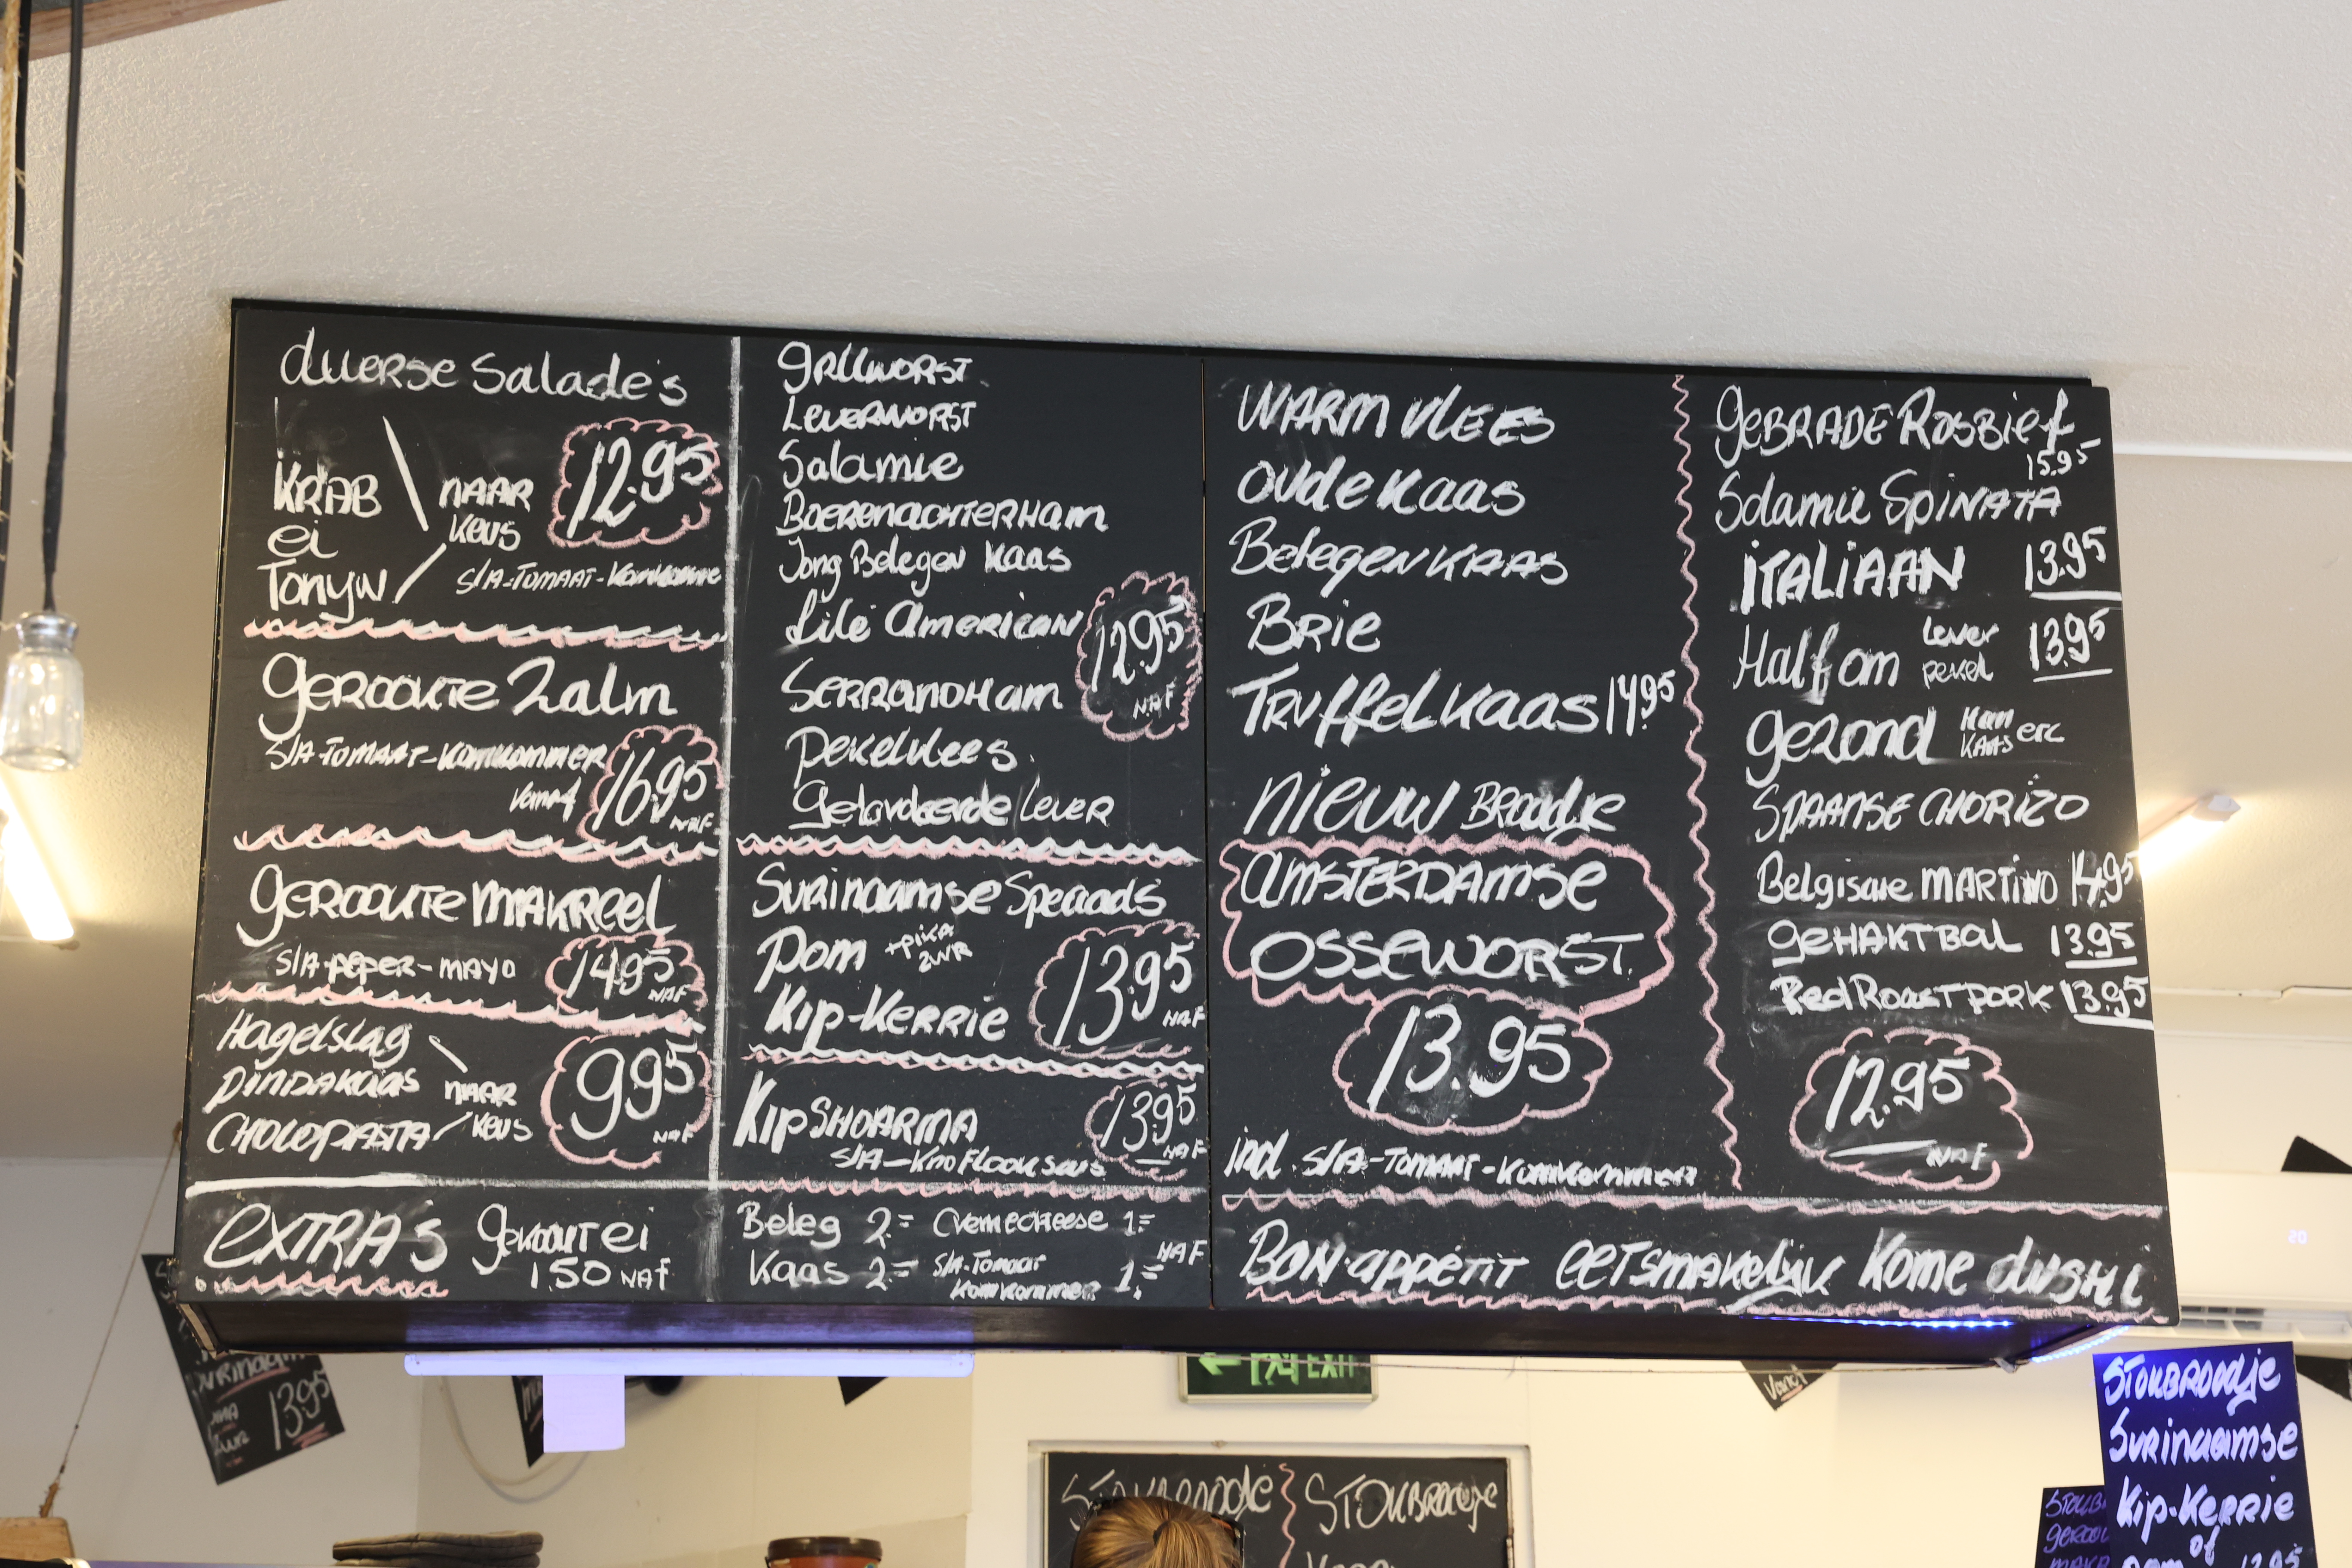 diverse Salade's
KRAB
ei
Tonijn
NAAR
keus
12.95
S/A-TOMAAT-Komkommer
gerookte Zalm
S/A-TOMAAT-Komkommer
vanaf
16.95
NAF
gerookte MAKREEL
S/A-peper-MAYO
14.95
NAF
Hagelslag
PINDAKAAS
CHOCOPASTA
NAAR
keus
9.95
NAF
EXTRA's
gekookt ei
1.50 NAF
GRILLWORST
LEVERWORST
Salamie
BOERENACHTERHAM
Jong Belegen Kaas
filé American
12.95
NAF
SERRANOHAM
Pekelvlees
Gelardeerde Lever
Surinaamse Speciaals
Pom +pika
ZWR
Kip-Kerrie
13.95
NAF
Kip SHOARMA
13.95
NAF
S/A-Knoflooksaus
Beleg 2=
Cremecheese 1=
Kaas 2=
S/A-Tomaat
Komkommer 1=
NAF
WARM VLEES
oude Kaas
Belegen KAAS
BRie
TRuffelkaas 14.95
nieuw Broodje
AMSTERDAMSE
OSSEWORST
13.95
incl. S/A-TOMAAT-Komkommer
geBRADE ROSBief
15.95
Salamie SPINATA
iTALiAAN 13.95
Half om Lever
pekel 13.95
gezond Ham
KAAS etc
SPAANSE CHORIZO
Belgische MARTINO 14.95
geHAKTBAL 13.95
Red Roast Pork 13.95
12.95
NAF
BON-appétit eetsmakelijk Kome dushi
EXIT
13.95
ZWR
20
STOKBROODJE
STOKBROODJE
STOKBROODJE
SURINAAMSE
Kip-Kerrie
of